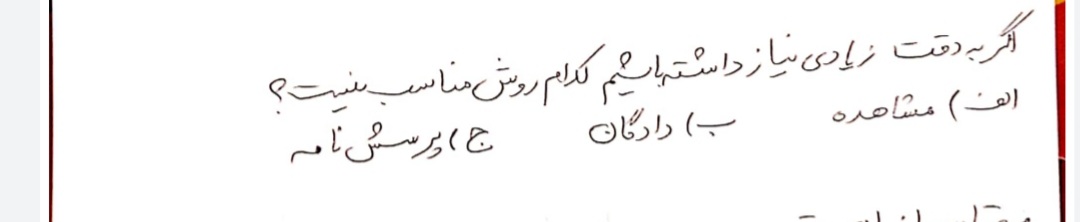 اگر به دقت زیادی نیاز داشته باشیم کدام روش مناسب نیست؟
الف) مشاهده ب) دادگان ج) پرسش نامه